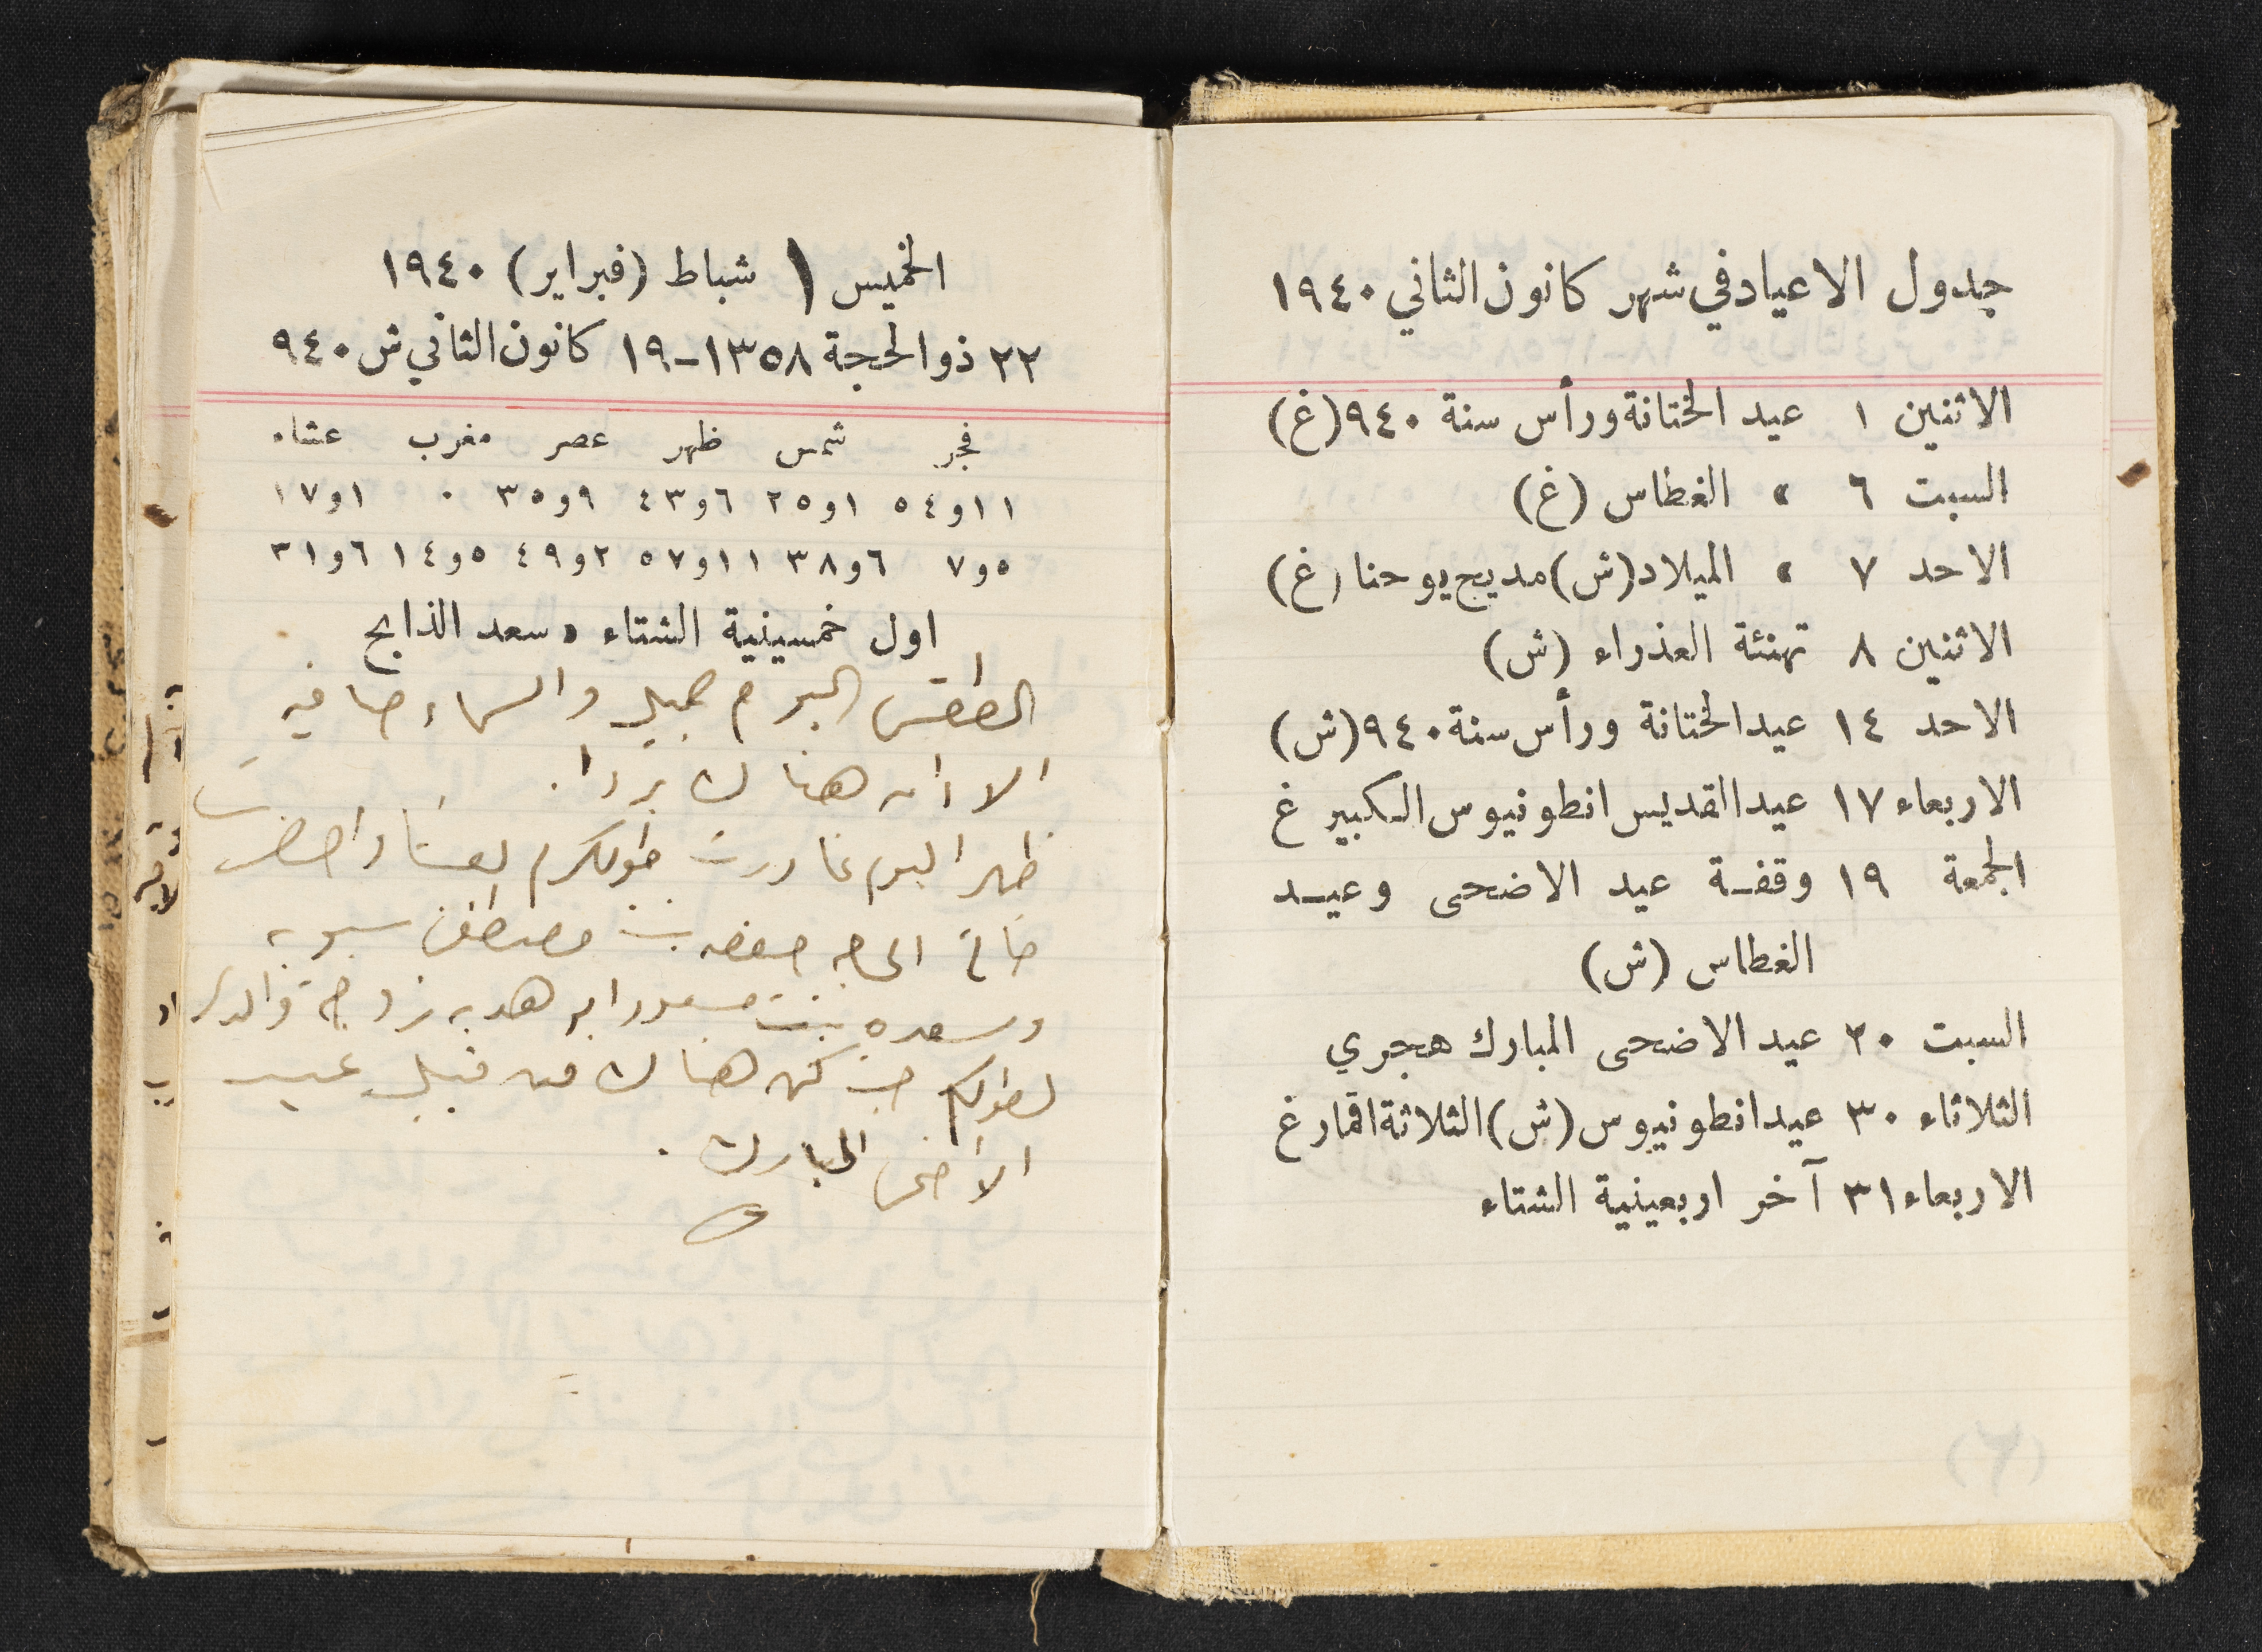 جدول الاعياد في شهر كانون الثاني ١٩٤٠
الاثنين ١ عيد الختانة ورأس سنة ٩٤٠ (غ)
السبت ٦ » الغطاس (غ)
الاحد ٧ » الميلاد (ش) مديح يوحنا (غ)
الاثنين ٨ تهنئة العذراء (ش)
الاحد ١٤ عيد الختانة ورأس سنة ٩٤٠ (ش)
الاربعاء ١٧ عيد القديس انطونيوس الكبير غ
الجمعة ١٩ وقفـة عيد الاضحى وعيـد
الغطاس (ش)
السبت ٢٠ عيد الاضحى المبارك هجري
الثلاثاء ٣٠ عيد انطونيوس (ش) الثلاثة اقمار غ
الاربعاء ٣١ آخر اربعينية الشتاء
(٢)
الخميس ١ شباط (فبراير) ١٩٤٠
٢٢ ذو الحجة ١٣٥٨ - ١٩ كانون الثاني ش ٩٤٠
فجر شمس ظهر عصر مغرب عشاء
١١و٥٤ ١و٢٥ ٦و٤٣ ٩و٣٥ ٠ ١و١٧
٥و٧ ٦و٣٨ ١١و٥٧ ٢و٤٩ ٥و١٤ ٦و٣١
اول خمسينية الشتاء ٥ سعد الذابح
الطقس اليوم جميل والسماء صافيه
الا انه هناك بردا.
ظهر اليوم غادرت طولكرم لعنبتا واحضرت
خالتي الحاجه حفضه بنت مصطفى
وسعده بنت مسعود ابو هدبه زوجة والدي
لطولكرم حيث كن هناك من قبل عيد
الاضحى المبارك.